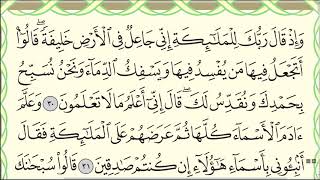 وَإِذْ قَالَ رَبُّكَ لِلْمَلَٰٓئِكَةِ إِنِّى جَاعِلٌ فِى ٱلْأَرْضِ خَلِيفَةً ۖ قَالُوٓا۟
أَتَجْعَلُ فِيهَا مَن يُفْسِدُ فِيهَا وَيَسْفِكُ ٱلدِّمَآءَ وَنَحْنُ نُسَبِّحُ
بِحَمْدِكَ وَنُقَدِّسُ لَكَ ۖ قَالَ إِنِّىٓ أَعْلَمُ مَا لَا تَعْلَمُونَ ٣٠ وَعَلَّمَ
ءَادَمَ ٱلْأَسْمَآءَ كُلَّهَا ثُمَّ عَرَضَهُمْ عَلَى ٱلْمَلَٰٓئِكَةِ فَقَالَ
أَنۢبِـُٔونِى بِأَسْمَآءِ هَٰٓؤُلَآءِ إِن كُنتُمْ صَٰدِقِينَ ٣١ قَالُوا۟ سُبْحَٰنَكَ